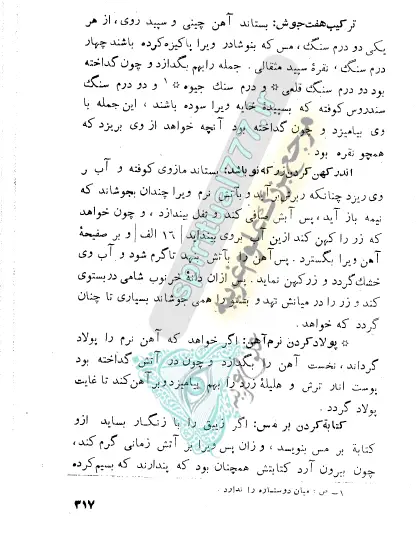 ترکیب هفت جوش: بستاند آهن چینی و سپید روی، از هر
یکی دو درم سنگ، مس که بنوشادر ویرا پاکیزه کرده باشند چهار
درم سنگ، نقرهٔ سپید مثقالی. جمله را بهم بگدازد و چون گداخته
بود دو درم سنگ قلعی * و درم سنگ جیوه * ۱ و دو درم سنگ
سندروس کوفته که بسپیدهٔ خایه ویرا سوده باشند، این جمله با
وی بیامیزد و چون گداخته بود آنچه خواهد از وی بریزد که
همچو نقره بود.
اندر کهن کردن زر که نو باشد: بستاند مازوی کوفته و آب بر
وی ریزد چنانکه زبرش برآید و بآتش نرم ویرا چندان بجوشاند که
نیمه باز آید، پس آبش صافی کند و ثفل بیندازد، و چون خواهد
که زر را کهن کند ازین آب بروی بینداید |۱۶ الف| و بر صفیحهٔ
آهن ویرا بگسترد. پس آهن را بآتش نهد تا گرم شود و آب وی
خشک گردد و زر کهن نماید. پس ازان دانهٔ خرنوب شامی در بستوی
کند و زر را در میانش نهد و بستو را همی جوشاند بسیاری تا چنان
گردد که خواهد.
* پولاد کردن نرم آهن: اگر خواهد که آهن نرم را پولاد
گرداند، نخست آهن را بگدازد و چون در آتش گداخته بود
پوست انار ترش و هلیلهٔ زرد را بهم بیامیزد و برآهن کند تا غایت
پولاد گردد.
کتابة کردن بر مس: اگر زیبق را با زنگار بساید ازو
کتابة بر مس بنویسد، و زان پس ویرا بر آتش زمانی گرم کند،
چون بیرون آرد کتابتش همچنان بود که پندارند که بسیم کرده
۱- س: میان دو ستاره را ندارد.
۳۱۷